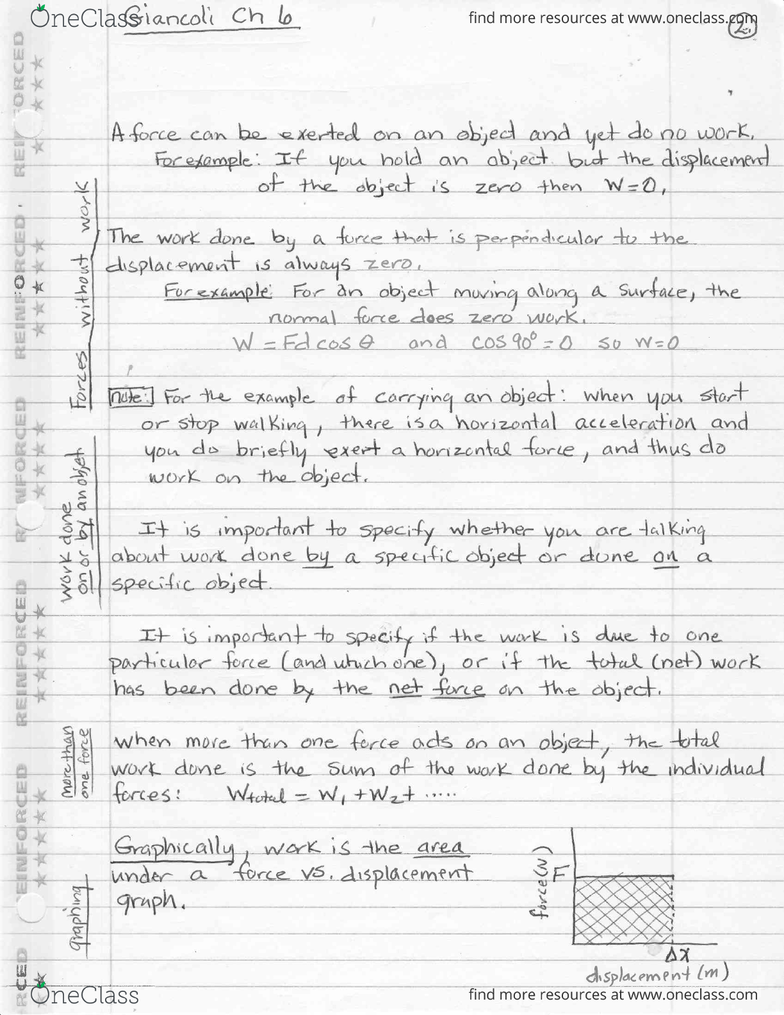 OneClass
Giancoli Ch 6
find more resources at www.oneclass.com
2.
A force can be exerted on an object and yet do no work.
For example: If you hold an object but the displacement
of the object is zero then W=0,
Forces without work
The work done by a force that is perpendiculor to the
displacement is always zero.
For example: For an object moving along a surface, the
normal force does zero work.
W = Fd cos θ and cos 90° = 0 so W=0
note: For the example of carrying an object: when you start
or stop walking, there is a horizontal acceleration and
you do briefly exert a horizontal force, and thus do
work on the object.
work done
on or by an objet
It is important to specify whether you are talking
about work done by a specific object or done on a
specific object.
It is important to specify if the work is due to one
particular force (and which one), or if the total (net) work
has been done by the net force on the object.
more than
one force
When more than one force acts on an object, the total
work done is the sum of the work done by the individual
forces: Wtotal = W1 + W2 + .....
graphing
Graphically, work is the area
under a force vs. displacement
graph.
force (N)
F
Δx
displacement (m)
REINFORCED
REINFORCED
REINFORCED
REINFORCED
REINFORCED
RCED
OneClass
find more resources at www.oneclass.com